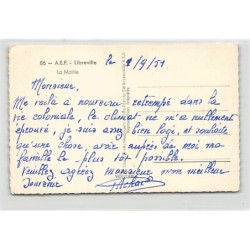 86 - A.E.F. - Libreville
La Mairie
le 1/9/51
Monsieur,
Me voilà à nouveau retrempé dans la
vie coloniale, le climat ne m'a nullement
éprouvé, je suis assez bien logé, et souhaite
qu'une chose, avoir auprès de moi ma
famille le plus tôt possible.
Veuillez agréer Monsieur mon meilleur
souvenir